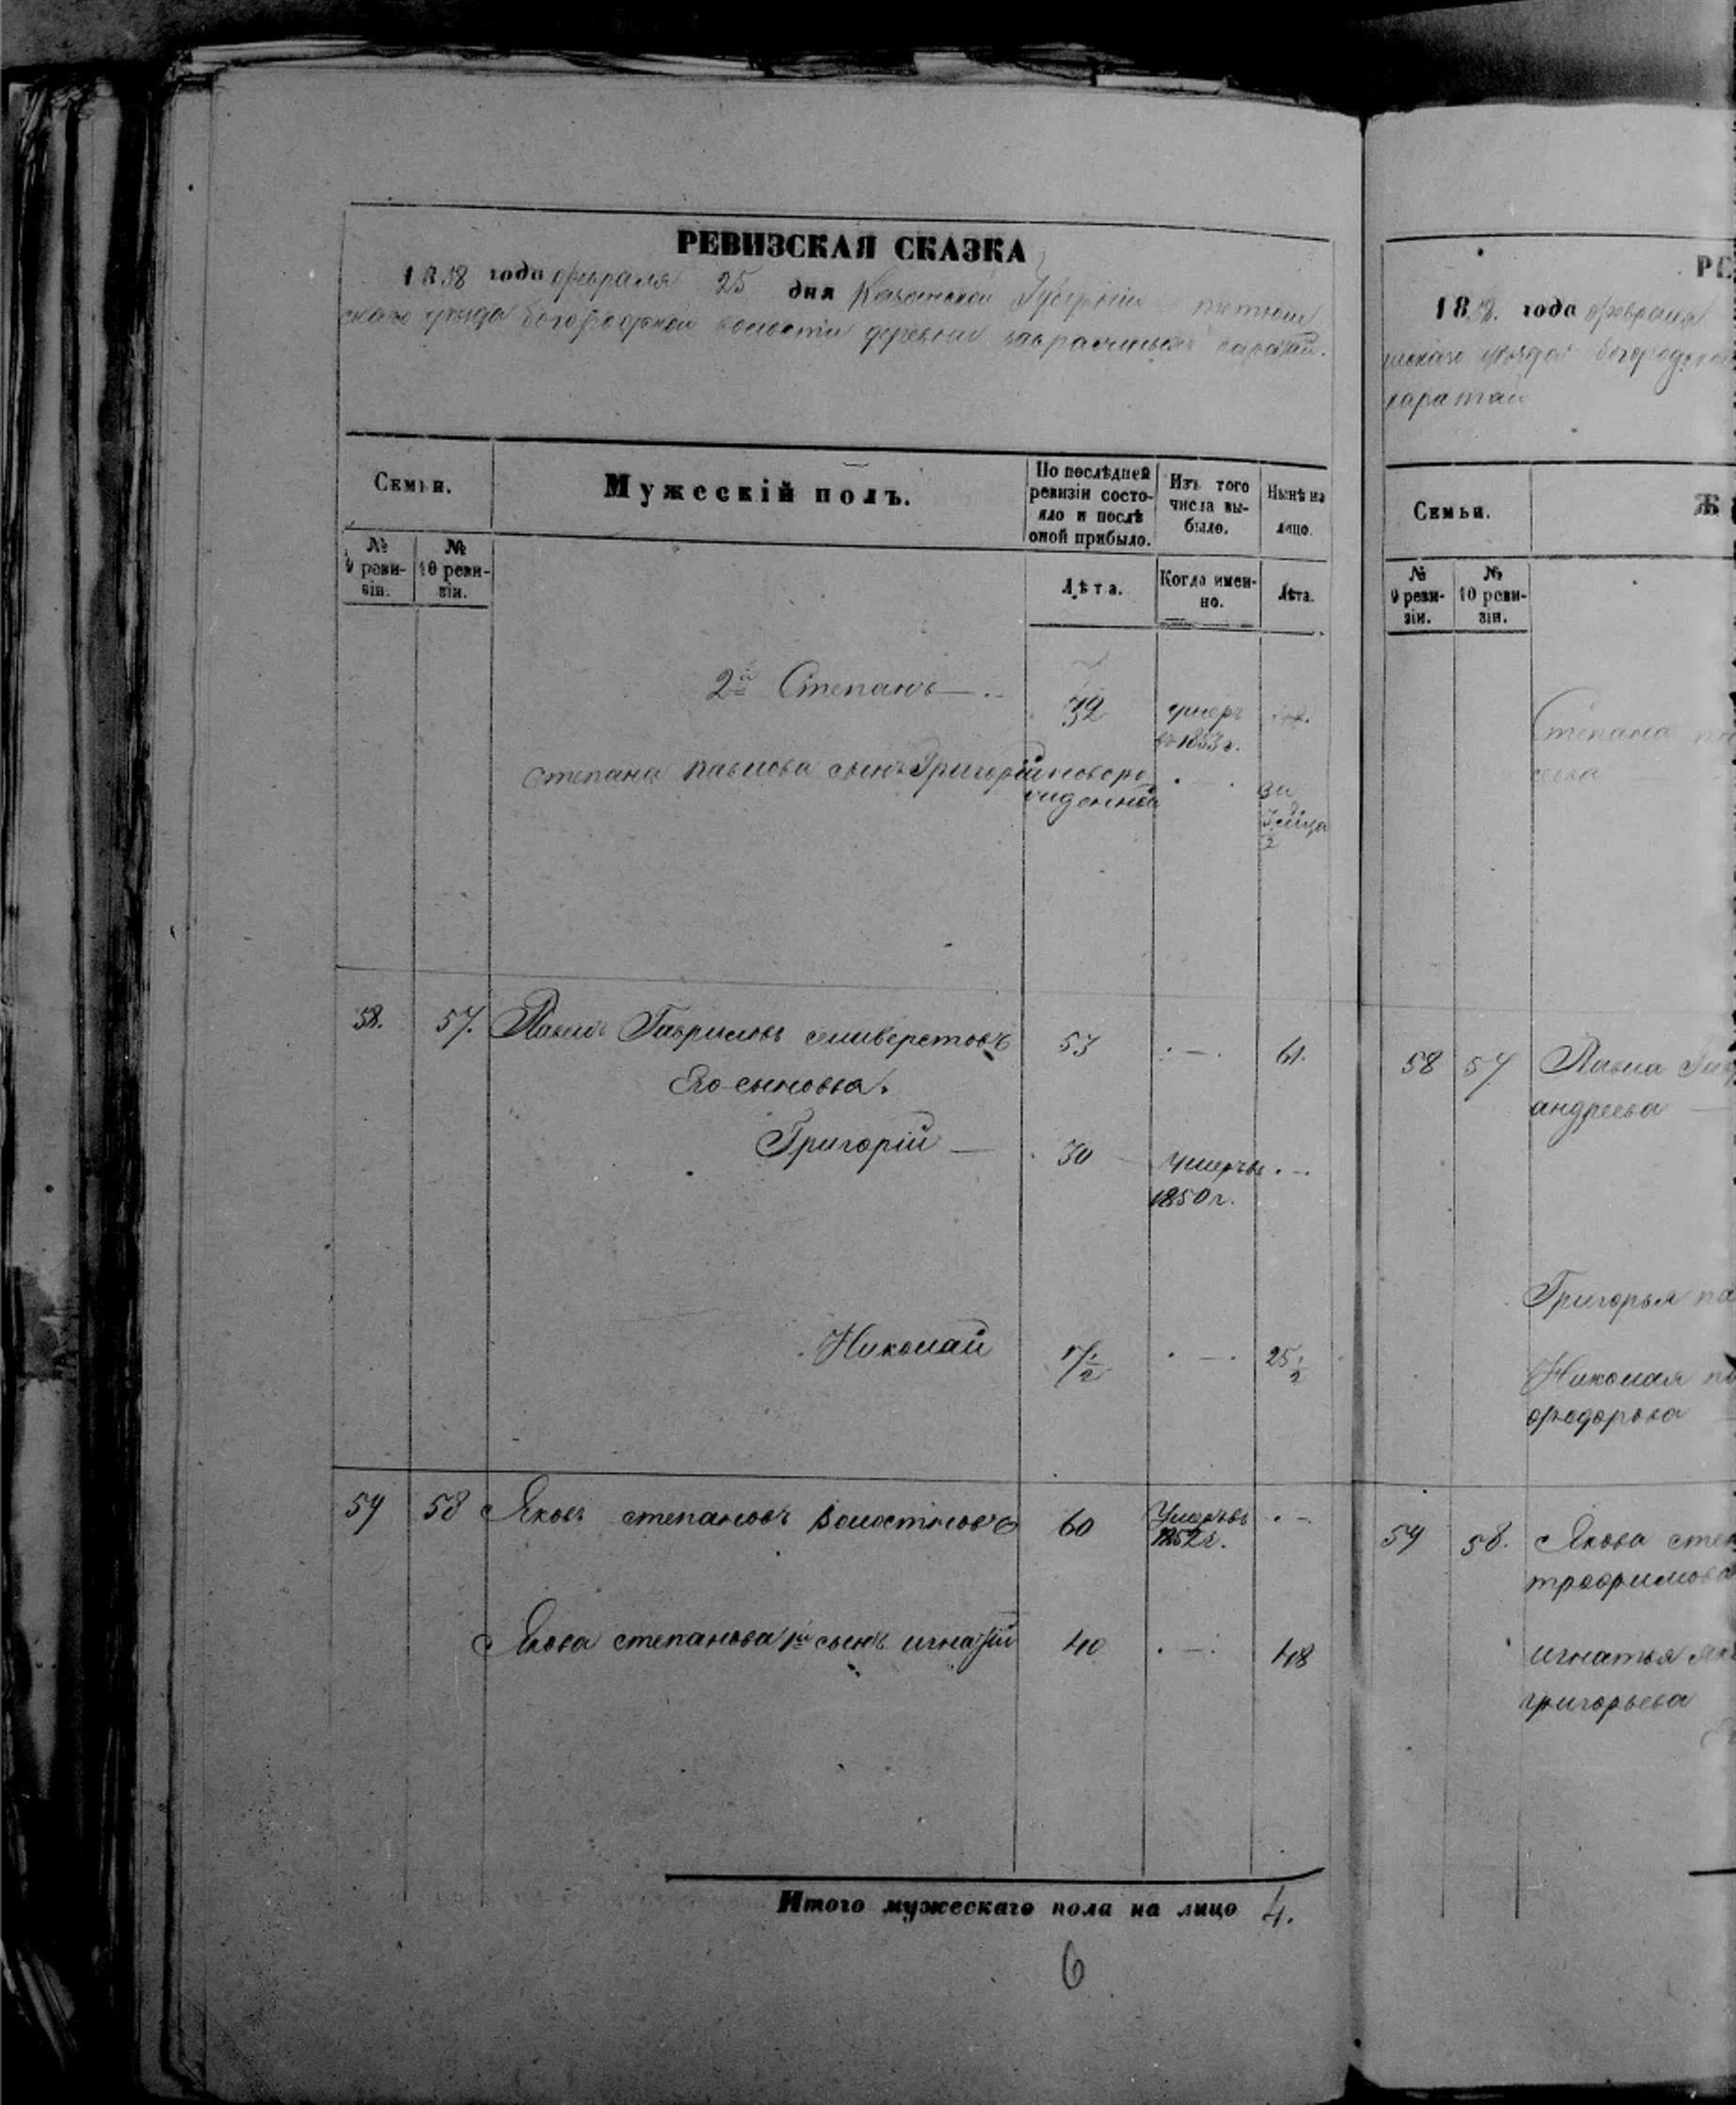 РЕВИЗСКАЯ СКАЗКА
1858 года февраля 25 дня Казанской Губерніи тетюш
скаго уезда богородской волости деревни каратай.
Семьи.
Мужескій полъ.
По послѣдней ревизіи состояло и послѣ оной прибыло.
Изъ того числа выбыло.
Нынѣ на лицо.
№ 9 ревизіи.
№ 10 ревизіи.
Лѣта.
Когда именно.
Лѣта.
2й Степанъ
32 умеръ
въ 1853 г.
степана павлова сынъ Григорій новоро
жденной
58. 57. Павелъ Гавриловъ селиверстовъ 53 61.
Его сыновья.
Григорій 30 умеръ въ
1850 г.
Николай 17 1/2 25 1/2
59 58 Яковъ степановъ волостновъ 60 Умеръ въ
1852 г.
Якова степанова 1й сынъ игнатій 40 48
Итого мужескаго пола на лицо 4.
6
РЕ
1858. года февраля
шскаго уезда богородской
каратай
Семьи.
Ж
№ 9 ревизіи.
№ 10 ревизіи.
Степана
58 57 Павла Гав
андреева
Григорья па
Николая па
федорова
59 58. Якова степ
трофимова
игнатья як
григорьева